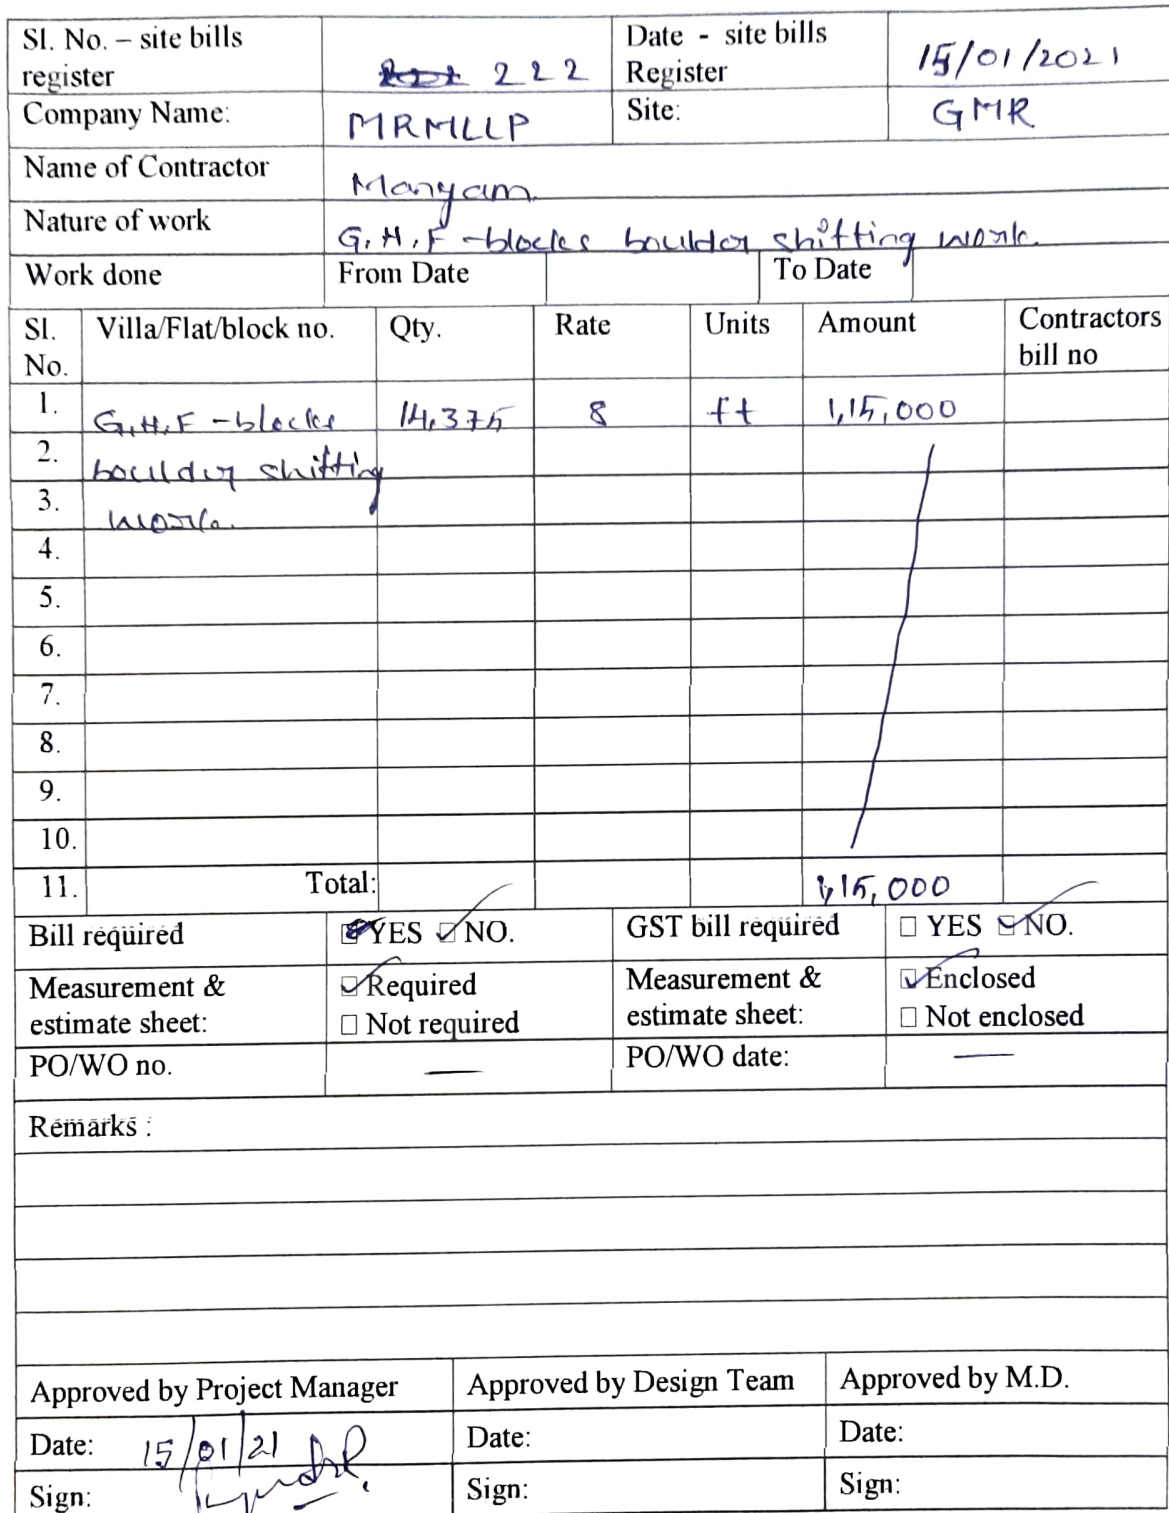 Sl. No. – site bills register 222 Date - site bills Register 15/01/2021
Company Name: MRMLLP Site: GMR
Name of Contractor Manyam
Nature of work G,H,F-blocks boulder shifting work.
Work done From Date To Date
Sl. No. Villa/Flat/block no. Qty. Rate Units Amount Contractors bill no
1. G,H,F-blocks 14,375 8 ft 1,15,000
2. boulder shifting
3. work.
4.
5.
6.
7.
8.
9.
10.
11. Total: 1,15,000
Bill required YES NO. GST bill required YES NO.
Measurement & estimate sheet: Required Measurement & estimate sheet: Enclosed
Not required Not enclosed
PO/WO no. — PO/WO date: —
Remarks :
Approved by Project Manager Approved by Design Team Approved by M.D.
Date: 15/01/21 Date: Date:
Sign: Sign: Sign: